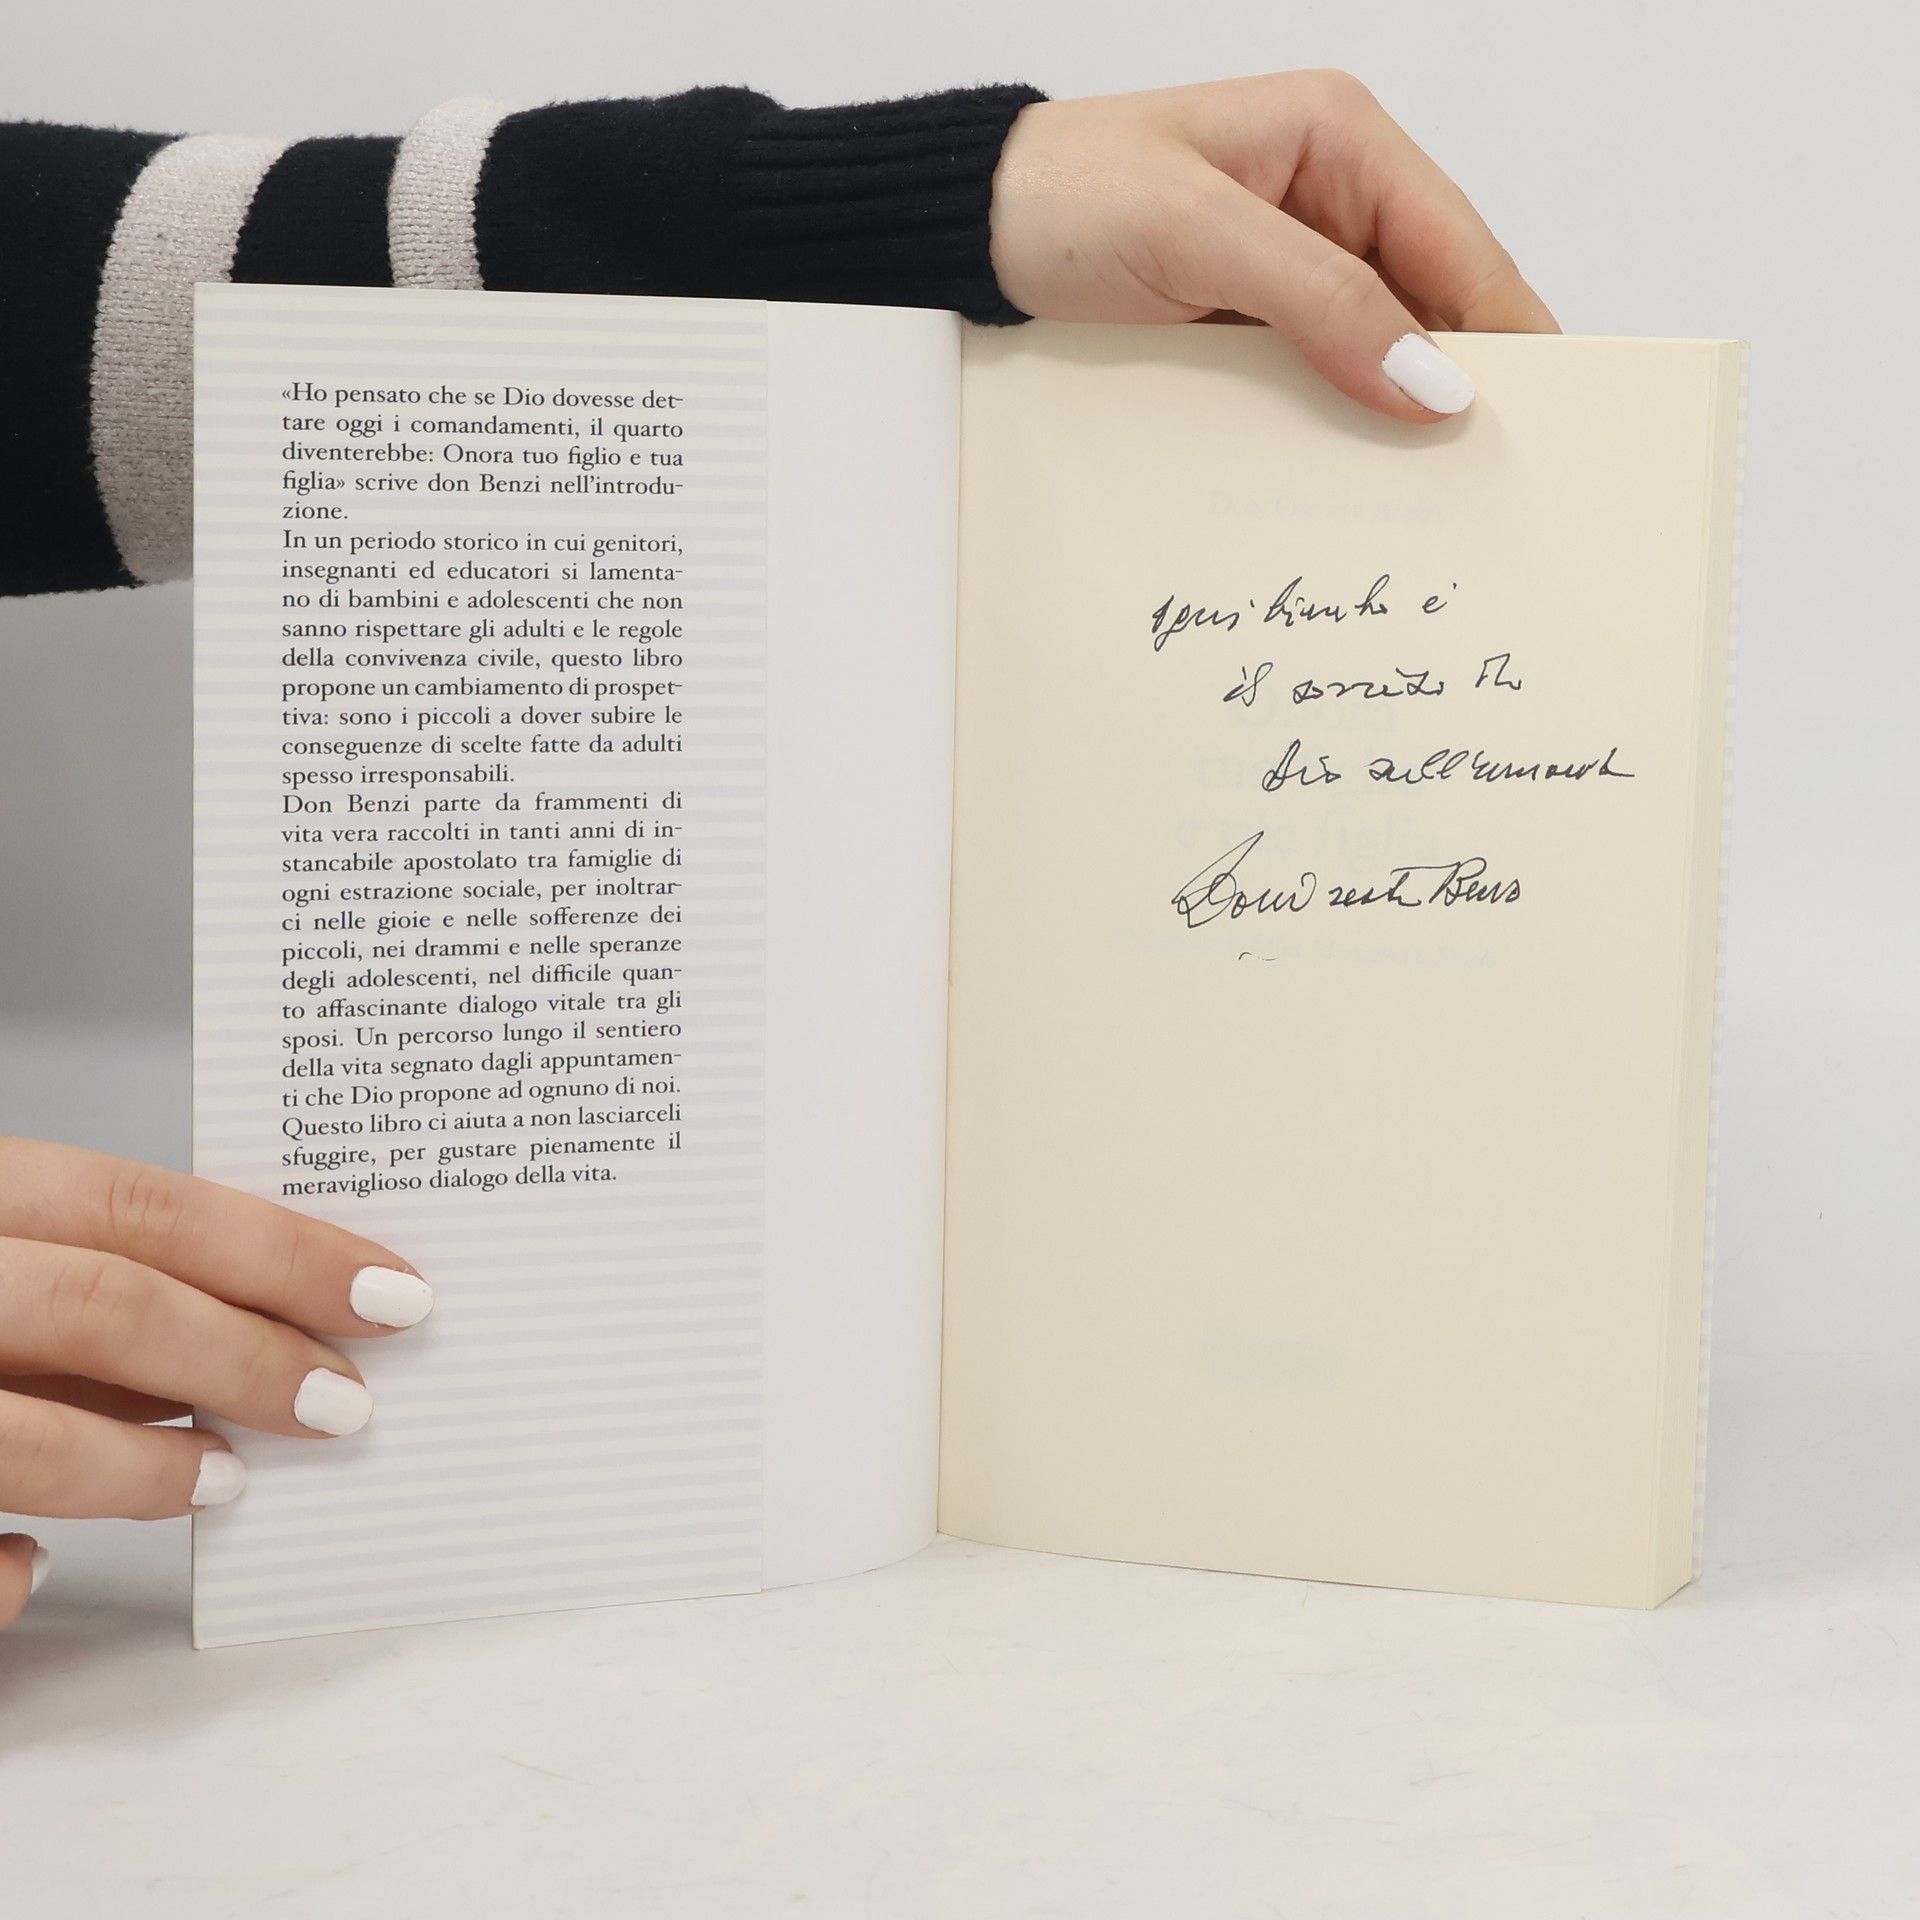 «Ho pensato che se Dio dovesse det-
tare oggi i comandamenti, il quarto
diventerebbe: Onora tuo figlio e tua
figlia» scrive don Benzi nell'introdu-
zione.
In un periodo storico in cui genitori,
insegnanti ed educatori si lamenta-
no di bambini e adolescenti che non
sanno rispettare gli adulti e le regole
della convivenza civile, questo libro
propone un cambiamento di prospet-
tiva: sono i piccoli a dover subire le
conseguenze di scelte fatte da adulti
spesso irresponsabili.
Don Benzi parte da frammenti di
vita vera raccolti in tanti anni di in-
stancabile apostolato tra famiglie di
ogni estrazione sociale, per inoltrar-
ci nelle gioie e nelle sofferenze dei
piccoli, nei drammi e nelle speranze
degli adolescenti, nel difficile quan-
to affascinante dialogo vitale tra gli
sposi. Un percorso lungo il sentiero
della vita segnato dagli appuntamen-
ti che Dio propone ad ognuno di noi.
Questo libro ci aiuta a non lasciarceli
sfuggire, per gustare pienamente il
meraviglioso dialogo della vita.
ogni bimbo è
il sorriso di
Dio sull'umanità
Don Oreste Benzi